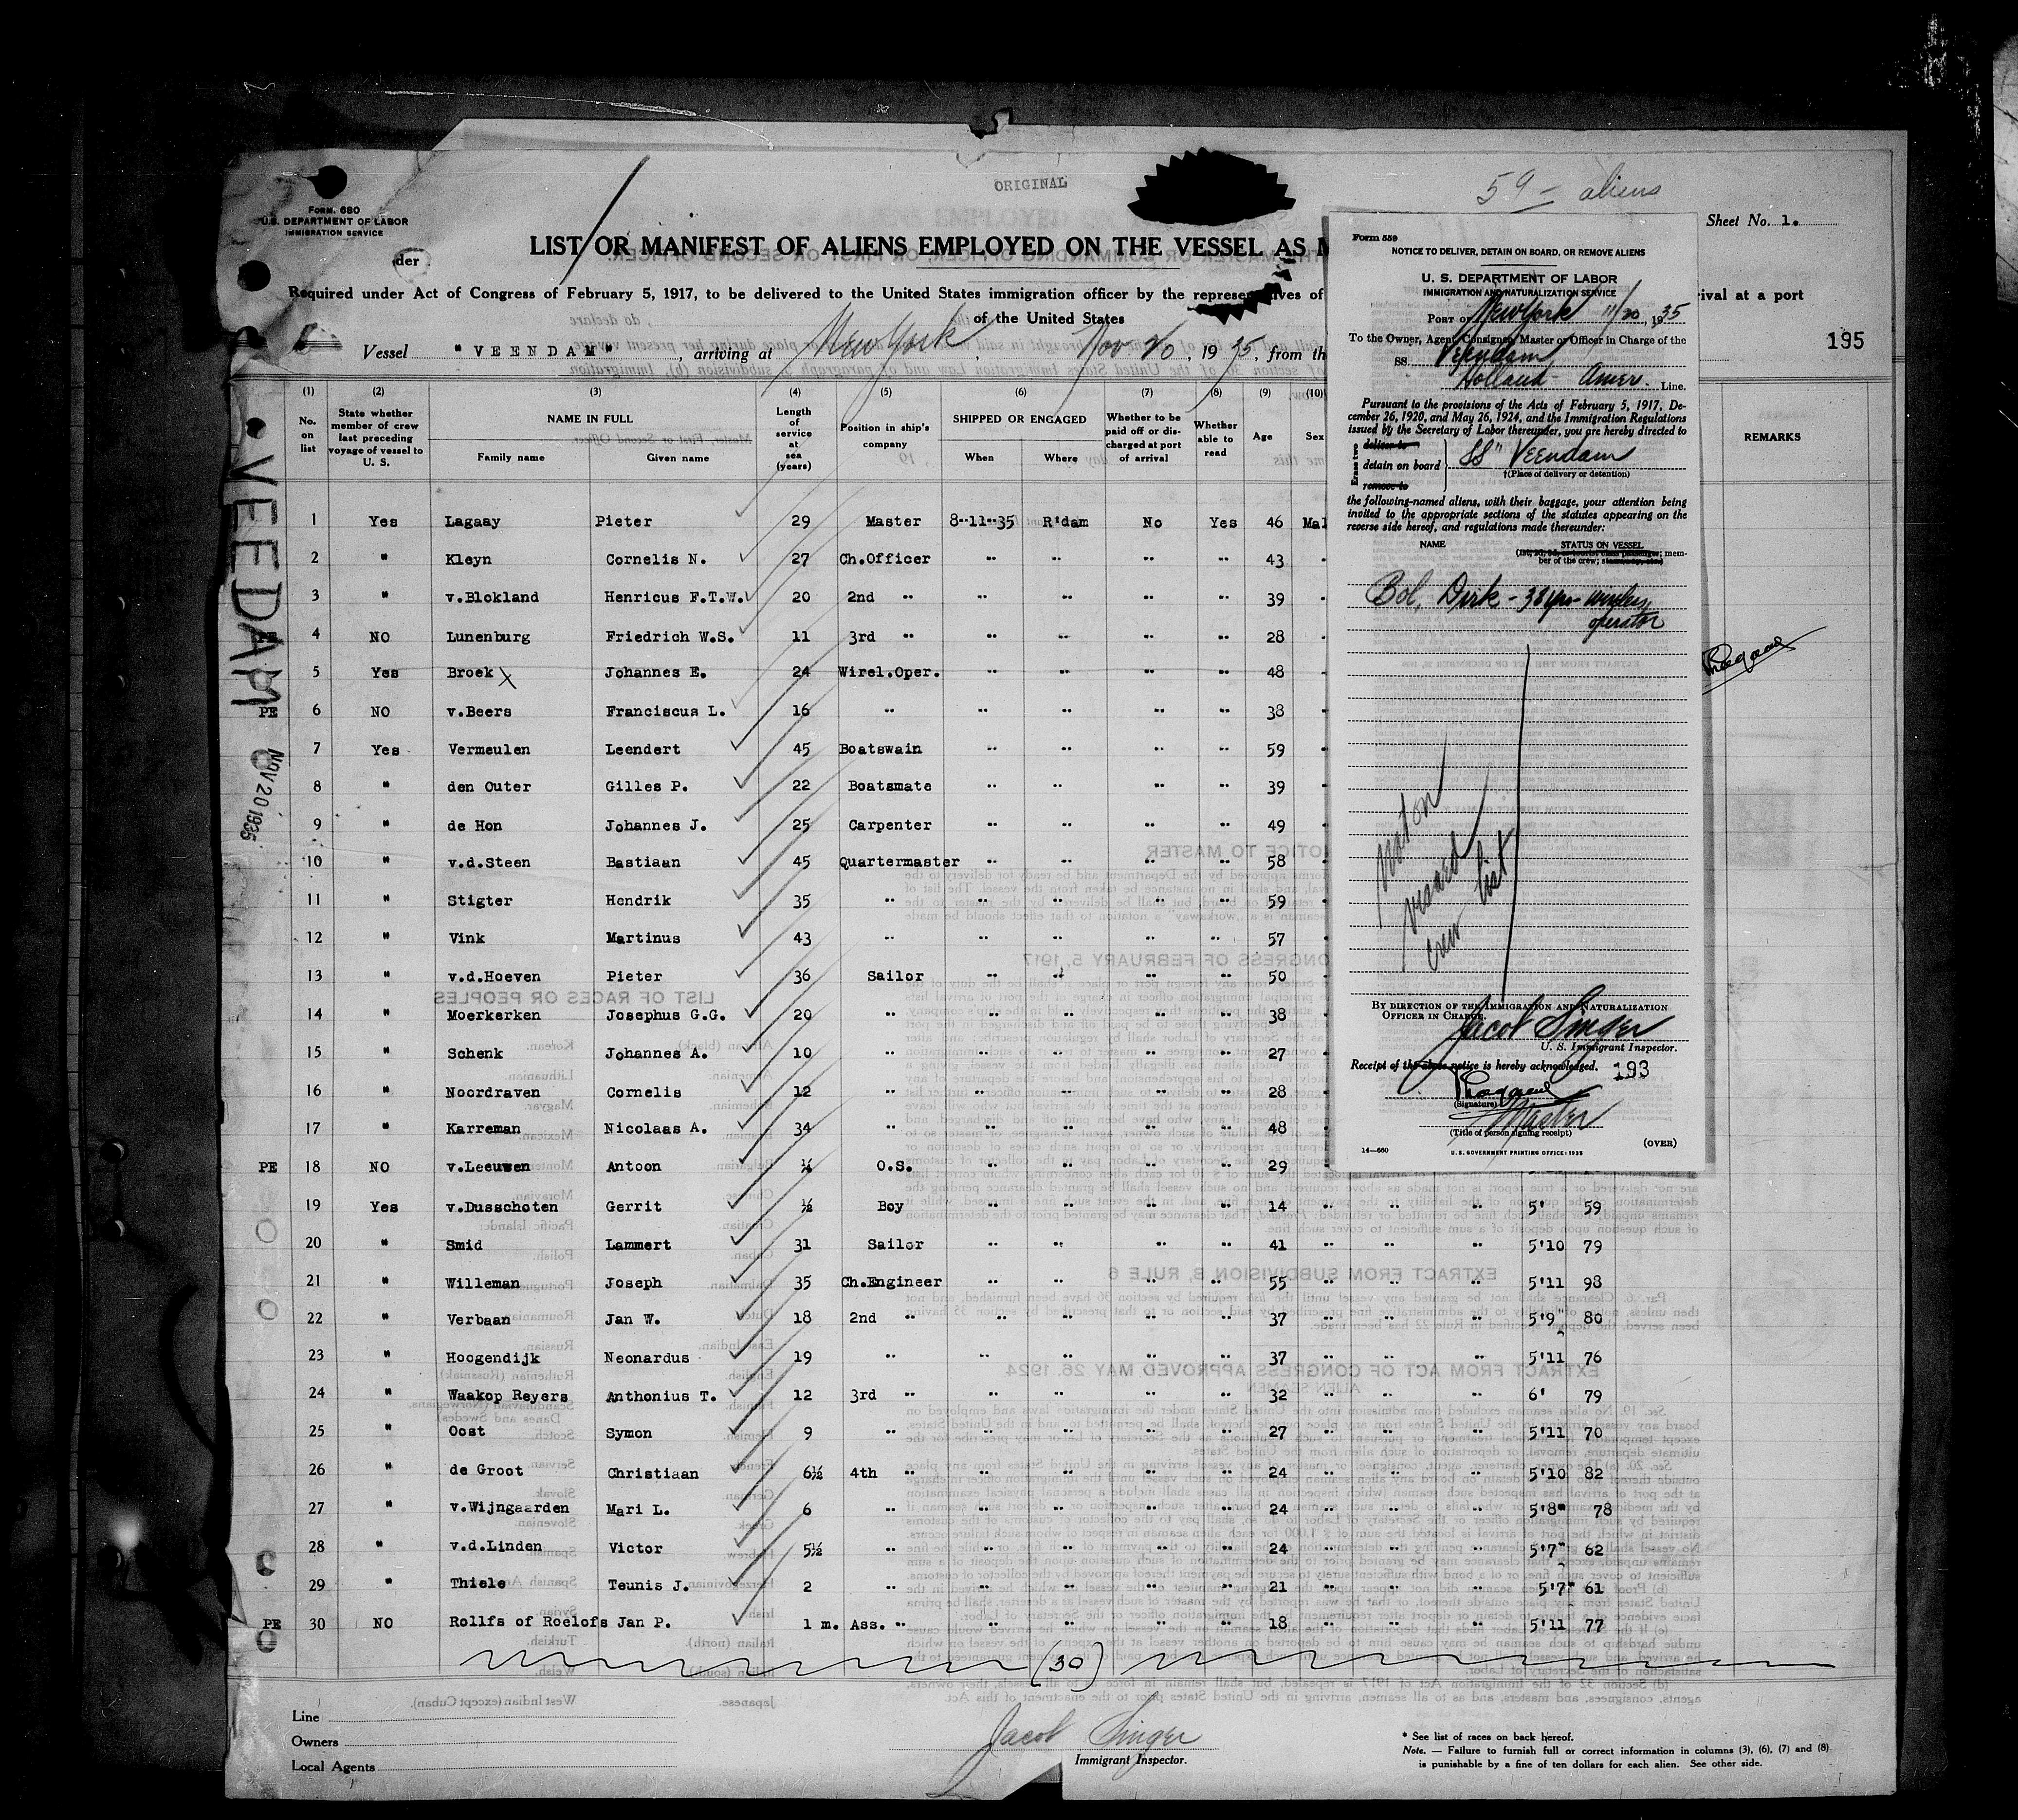 ORIGINAL
59 - aliens
FORM 680
U.S. DEPARTMENT OF LABOR
IMMIGRATION SERVICE
Sheet No. 1.
der
LIST OR MANIFEST OF ALIENS EMPLOYED ON THE VESSEL AS M
Required under Act of Congress of February 5, 1917, to be delivered to the United States immigration officer by the representatives of
rival at a port
of the United States
195
Vessel "VEENDAM", arriving at New York, Nov 20, 1935, from th
(1) (2) (3) (4) (5) (6) (7) (8) (9) (10)
No. on list
State whether member of crew last preceding voyage of vessel to U. S.
NAME IN FULL
Family name Given name
Length of service at sea (years)
Position in ship's company
SHIPPED OR ENGAGED
When Where
Whether to be paid off or discharged at port of arrival
Whether able to read
Age
Sex
REMARKS
1 Yes Lagaay Pieter 29 Master 8-11-35 R'dam No Yes 46 Mal
2 " Kleyn Cornelis N. 27 Ch.Officer " " " " 43
3 " v.Blokland Henricus F.T.W. 20 2nd " " " " " 39
PE 4 NO Lunenburg Friedrich W.S. 11 3rd " " " " " 28
5 Yes Broek X Johannes E. 24 Wirel.Oper. " " " " 48
PE 6 NO v.Beers Franciscus L. 16 " " " " " 38
7 Yes Vermeulen Leendert 45 Boatswain " " " " 59
8 " den Outer Gilles P. 22 Boatsmate " " " " 39
9 " de Hon Johannes J. 25 Carpenter " " " " 49
10 " v.d.Steen Bastiaan 45 Quartermaster " " " " 58
11 " Stigter Hendrik 35 " " " " " 59
12 " Vink Martinus 43 " " " " " 57
13 " v.d.Hoeven Pieter 36 Sailor " " " " 50
14 " Moerkerken Josephus G.G. 20 " " " " " 38
15 " Schenk Johannes A. 10 " " " " " 27
16 " Noordraven Cornelis 12 " " " " " 28
17 " Karreman Nicolaas A. 34 " " " " " 48
PE 18 NO v.Leeuwen Antoon ¼ O.S. " " " " 29
19 Yes v.Dusschoten Gerrit ½ Boy " " " " 14 " " " 5' 59
20 " Smid Lammert 31 Sailor " " " " 41 " " " 5'10 79
21 " Willeman Joseph 35 Ch.Engineer " " " " 55 " " " 5'11 98
22 " Verbaan Jan W. 18 2nd " " " " " 37 " " " 5'9" 80
23 " Hoogendijk Neonardus 19 " " " " " 37 " " " 5'11 76
24 " Waakop Reyers Anthonius T. 12 3rd " " " " " 32 " " " 6' 79
25 " Oost Symon 9 " " " " " 27 " " " 5'11 70
26 " de Groot Christiaan 6½ 4th " " " " " 24 " " " 5'10 82
27 " v.Wijngaarden Mari L. 6 " " " " " 24 " " " 5'8" 78
28 " v.d.Linden Victor 5½ " " " " " 24 " " " 5'7" 62
29 " Thiele Teunis J. 2 " " " " " 21 " " " 5'7" 61
PE 30 NO Rollfs of Roelofs Jan P. 1 m. Ass. " " " " " 18 " " " 5'11 77
(30)
Line
Owners
Local Agents
Jacob Singer
Immigrant Inspector.
* See list of races on back hereof.
Note. — Failure to furnish full or correct information in columns (3), (6), (7) and (8)
is punishable by a fine of ten dollars for each alien. See other side.
VEEDAM
NOV 20 1935
Form 559
NOTICE TO DELIVER, DETAIN ON BOARD, OR REMOVE ALIENS
U. S. DEPARTMENT OF LABOR
IMMIGRATION AND NATURALIZATION SERVICE
PORT OF New York 11/20, 1935
To the Owner, Agent, Consignee, Master or Officer in Charge of the
SS. Veendam
Holland - Amer. Line.
Pursuant to the provisions of the Acts of February 5, 1917, De-
cember 26, 1920, and May 26, 1924, and the Immigration Regulations
issued by the Secretary of Labor thereunder, you are hereby directed to
Erase two
deliver to
detain on board
remove to
SS" Veendam
†(Place of delivery or detention)
the following-named aliens, with their baggage, your attention being
invited to the appropriate sections of the statutes appearing on the
reverse side hereof, and regulations made thereunder:
NAME
STATUS ON VESSEL
mem-
ber of the crew;
Bol, Dirk - 38 yrs - wireless
operator
not on
visaed
crew list
BY DIRECTION OF THE IMMIGRATION AND NATURALIZATION
OFFICER IN CHARGE.
Jacob Singer
U. S. Immigrant Inspector.
Receipt of the above notice is hereby acknowledged. 193
(Signature)
Master
(Title of person signing receipt)
(OVER)
14—660
U.S. GOVERNMENT PRINTING OFFICE: 1935